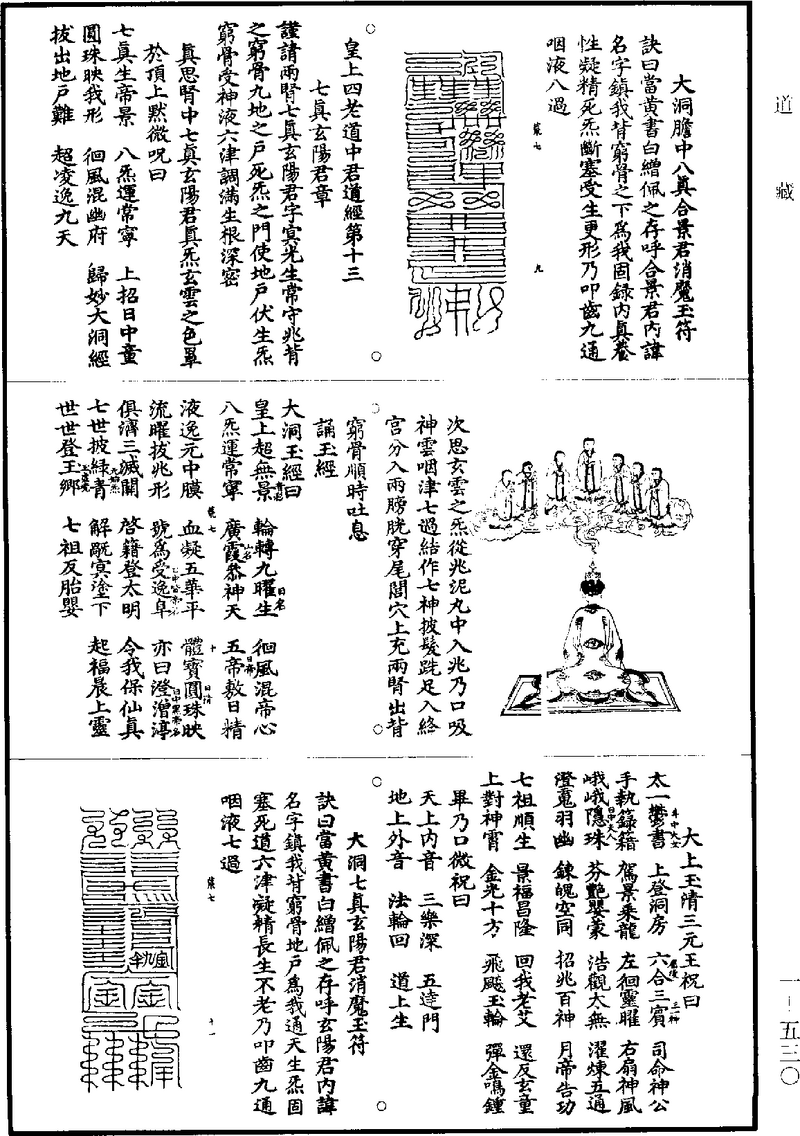 道藏
大洞膽中八真合景君消魔玉符
訣曰當黃書白繒佩之存呼合景君內諱
名字鎮我背窮骨之下爲我固錄內真養
性凝精死炁斷塞受生更形乃叩齒九通
咽液八過
九
皇上四老道中君道經第十三
七真玄陽君章
謹請兩腎七真玄陽君字冥光生常守兆背
之窮骨九地之戶死炁之門使地戶伏生炁
窮骨受神液六津調滿生根深密
真思腎中七真玄陽君真炁玄雲之色罩
於頂上默微呪曰
七真生帝景　八炁運常寧　上招日中童
圓珠映我形　徊風混幽府　歸妙大洞經
拔出地戶難　超凌逸九天
次思玄雲之炁從兆泥丸中入兆乃口吸
神雲咽津七過結作七神披髮跣足入絳
宮分入兩膀胱穿尾閭穴上充兩腎出背
窮骨順時吐息
誦玉經
大洞玉經曰
皇上超無景　輪轉九曜生日名　徊風混帝心
八炁運常寧　廣霞山名恭神天　五帝日帝敷日精
液逸元中膜　血凝五華平　體寶圓珠映
流曜拔兆形　號爲受逸阜　亦曰澄渟
俱濟三滅關　啓籍登太明　令我保仙真
七世披綠青　解厭冥塗下　起福晨上靈
世世登王鄉　七祖反胎嬰
十
大上玉清三元王祝曰
太一鬱書　上登洞房　六合三賓　司命神公
手執籙籍　駕景乘龍　左徊靈曜　右扇神風
峨峨隱珠　芬艷嬰蒙　浩觀太無　濯煉五通
澄魂羽幽　鍊魄空同　招兆百神　月帝告功
七祖順生　景福昌隆　回我老艾　還反玄童
上對神霄　金光十方　飛飈玉輪　彈金鳴鍾
畢乃口微祝曰
天上內音　三樂深　五達門
地上外音　法輪回　道上生
大洞七真玄陽君消魔玉符
訣曰當黃書白繒佩之存呼玄陽君內諱
名字鎮我背窮骨地戶爲我通天生炁固
塞死道六津凝精長生不老乃叩齒九通
咽液七過
十一
一-五三〇